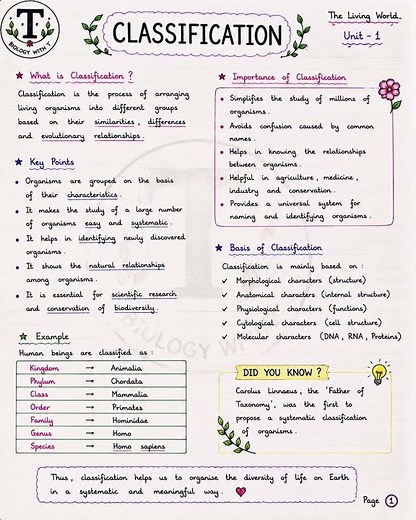 T
BIOLOGY WITH T
CLASSIFICATION
The Living World
Unit - 1
What is Classification ?
Classification is the process of arranging
living organisms into different groups
based on their similarities, differences
and evolutionary relationships.
Key Points
Organisms are grouped on the basis
of their characteristics.
It makes the study of a large number
of organisms easy and systematic.
It helps in identifying newly discovered
organisms.
It shows the natural relationships
among organisms.
It is essential for scientific research
and conservation of biodiversity.
Example
Human beings are classified as :
Kingdom → Animalia
Phylum → Chordata
Class → Mammalia
Order → Primates
Family → Hominidae
Genus → Homo
Species → Homo sapiens
Importance of Classification
Simplifies the study of millions of
organisms.
Avoids confusion caused by common
names.
Helps in knowing the relationships
between organisms.
Helpful in agriculture, medicine,
industry and conservation.
Provides a universal system for
naming and identifying organisms.
Basis of Classification
Classification is mainly based on :
✓ Morphological characters (structure)
✓ Anatomical characters (internal structure)
✓ Physiological characters (functions)
✓ Cytological characters (cell structure)
✓ Molecular characters (DNA, RNA, Proteins)
DID YOU KNOW ?
Carolus Linnaeus, the 'Father of
Taxonomy', was the first to
propose a systematic classification
of organisms.
Thus, classification helps us to organise the diversity of life on Earth
in a systematic and meaningful way.
Page 1
BIOLOGY WITH T